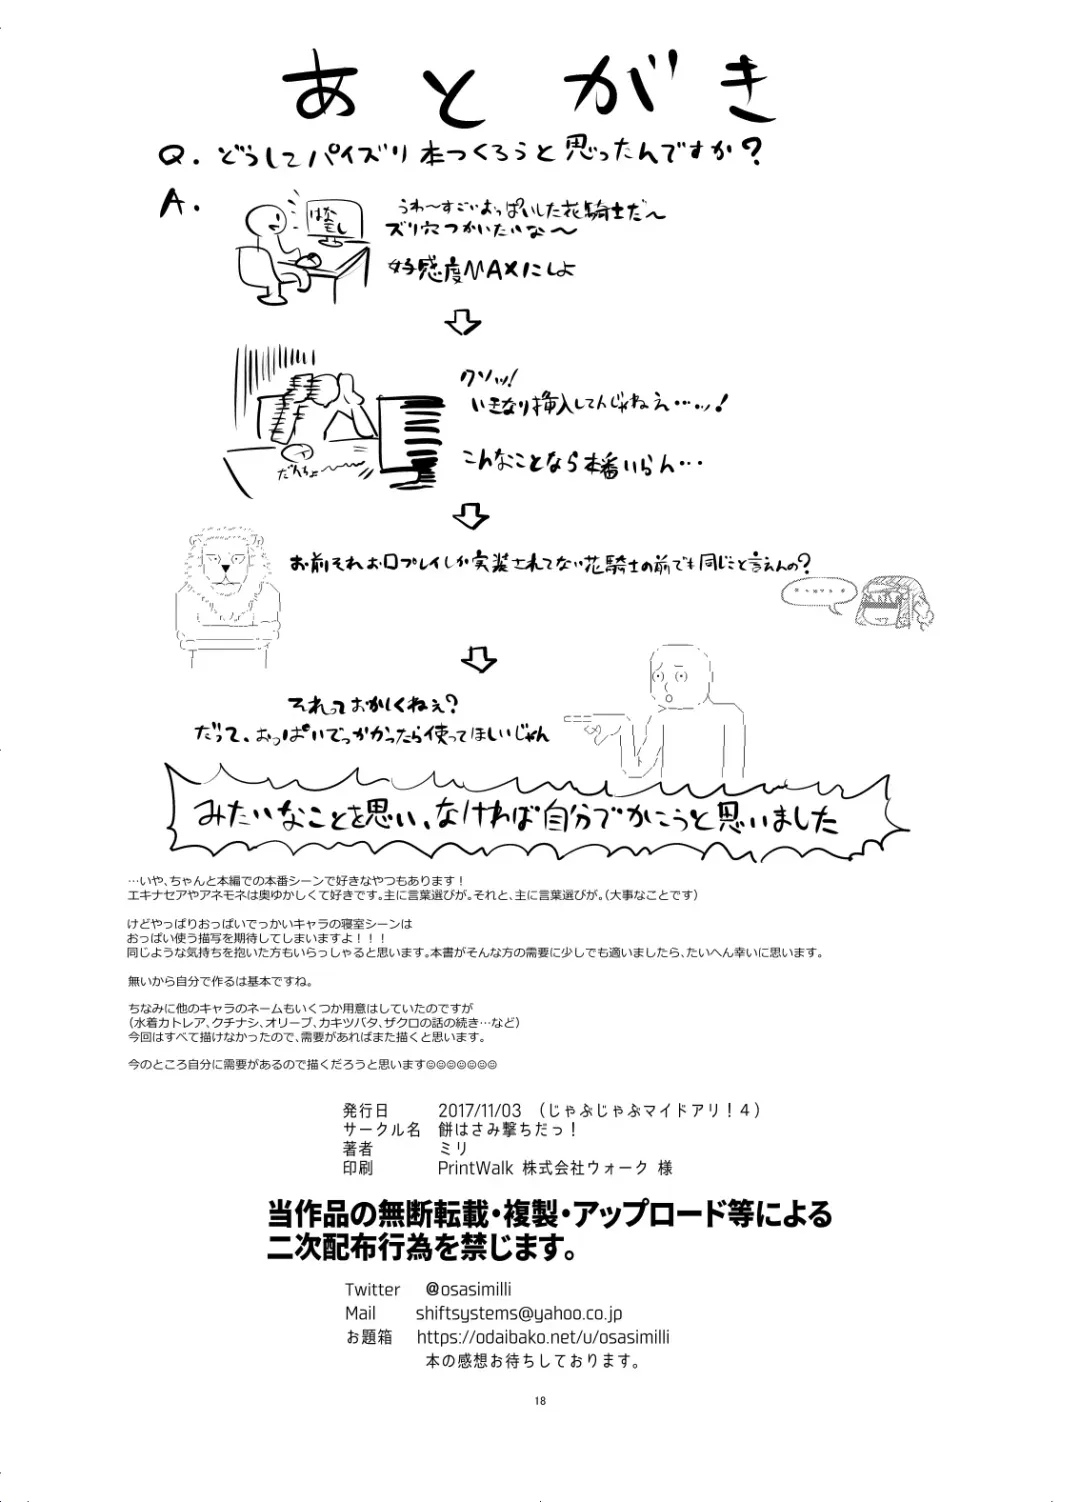 あとがき
Q. どうしてパイズリ本つくろうと思ったんですか?
A.
はな
モし
うわ〜すごいおっぱいした花騎士だ〜
ズリ穴つかいたいな〜
好感度MAXにしよ
クソッ!
いきなり挿入してんじゃねぇ…ッ!
こんなことなら本番いらん…
だんちょ〜
お前それお口プレイしか実装されてない花騎士の前でも同じこと言えんの?
それっておかしくねぇ?
だって、おっぱいでっかかったら使ってほしいじゃん
みたいなことを思い、なければ自分でかこうと思いました
…いや、ちゃんと本編での本番シーンで好きなやつもあります!
エキナセアやアネモネは奥ゆかしくて好きです。主に言葉選びが。それと、主に言葉選びが。(大事なことです)
けどやっぱりおっぱいでっかいキャラの寝室シーンは
おっぱい使う描写を期待してしまいますよ!!!
同じような気持ちを抱いた方もいらっしゃると思います。本書がそんな方の需要に少しでも適いましたら、たいへん幸いに思います。
無いから自分で作るは基本ですね。
ちなみに他のキャラのネームもいくつか用意はしていたのですが
(水着カトレア、クチナシ、オリーブ、カキツバタ、ザクロの話の続き…など)
今回はすべて描けなかったので、需要があればまた描くと思います。
今のところ自分に需要があるので描くだろうと思います☺☺☺☺☺☺☺
発行日 2017/11/03 (じゃぶじゃぶマイドアリ!4)
サークル名 餅はさみ撃ちだっ!
著者 ミリ
印刷 PrintWalk 株式会社ウォーク 様
当作品の無断転載・複製・アップロード等による
二次配布行為を禁じます。
Twitter @osasimilli
Mail shiftsystems@yahoo.co.jp
お題箱 https://odaibako.net/u/osasimilli
本の感想お待ちしております。
18